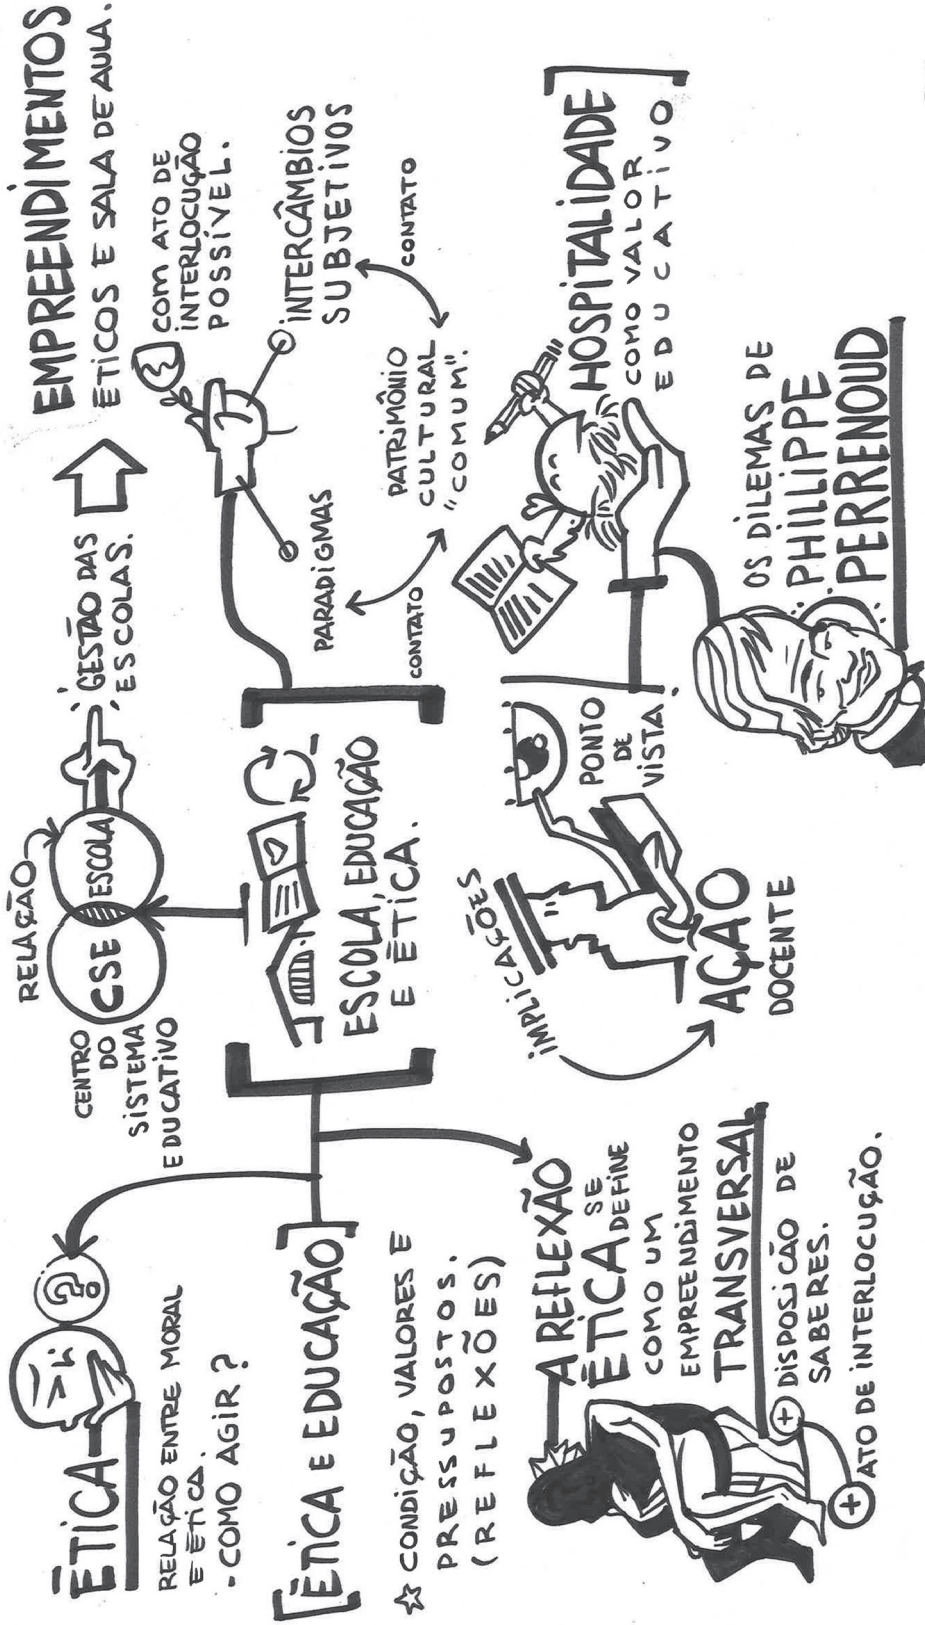 ÉTICA
RELAÇÃO ENTRE MORAL
E ÉTICA.
- COMO AGIR?
?
[ÉTICA E EDUCAÇÃO]
☆ CONDIÇÃO, VALORES E
PRESSUPOSTOS.
(REFLEXÕES)
A REFLEXÃO
ÉTICA SE
DEFINE
COMO UM
EMPREENDIMENTO
TRANSVERSAL
+ DISPOSIÇÃO DE
SABERES.
+ ATO DE INTERLOCUÇÃO.
RELAÇÃO
CSE
ESCOLA
CENTRO
DO
SISTEMA
EDUCATIVO
GESTÃO DAS
ESCOLAS.
EMPREENDIMENTOS
ÉTICOS E SALA DE AULA.
ESCOLA, EDUCAÇÃO
E ÉTICA.
COM ATO DE
INTERLOCUÇÃO
POSSÍVEL.
INTERCÂMBIOS
SUBJETIVOS
PARADIGMAS
CONTATO
PATRIMÔNIO
CULTURAL
"COMUM".
CONTATO
IMPLICAÇÕES
AÇÃO
DOCENTE
PONTO
DE
VISTA
HOSPITALIDADE
COMO VALOR
EDUCATIVO
OS DILEMAS DE
PHILLIPPE
PERRENOUD